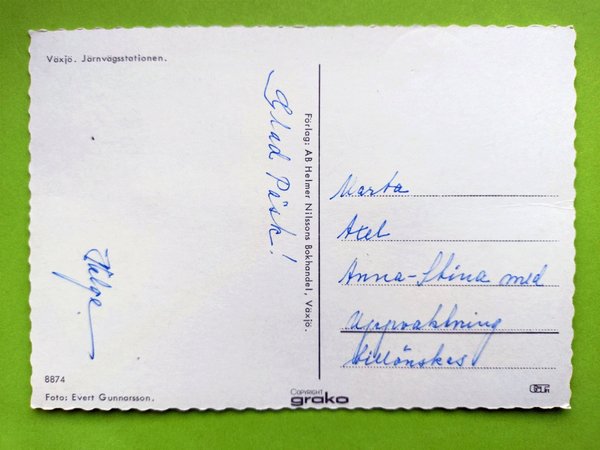 Växjö. Järnvägsstationen.
Glad Påsk!
Helge
8874
Foto: Evert Gunnarsson.
Förlag: AB Helmer Nilssons Bokhandel, Växjö.
COPYRIGHT
grako
Marta
Axel
Anna-Stina med
Uppvaktning
tillönskas